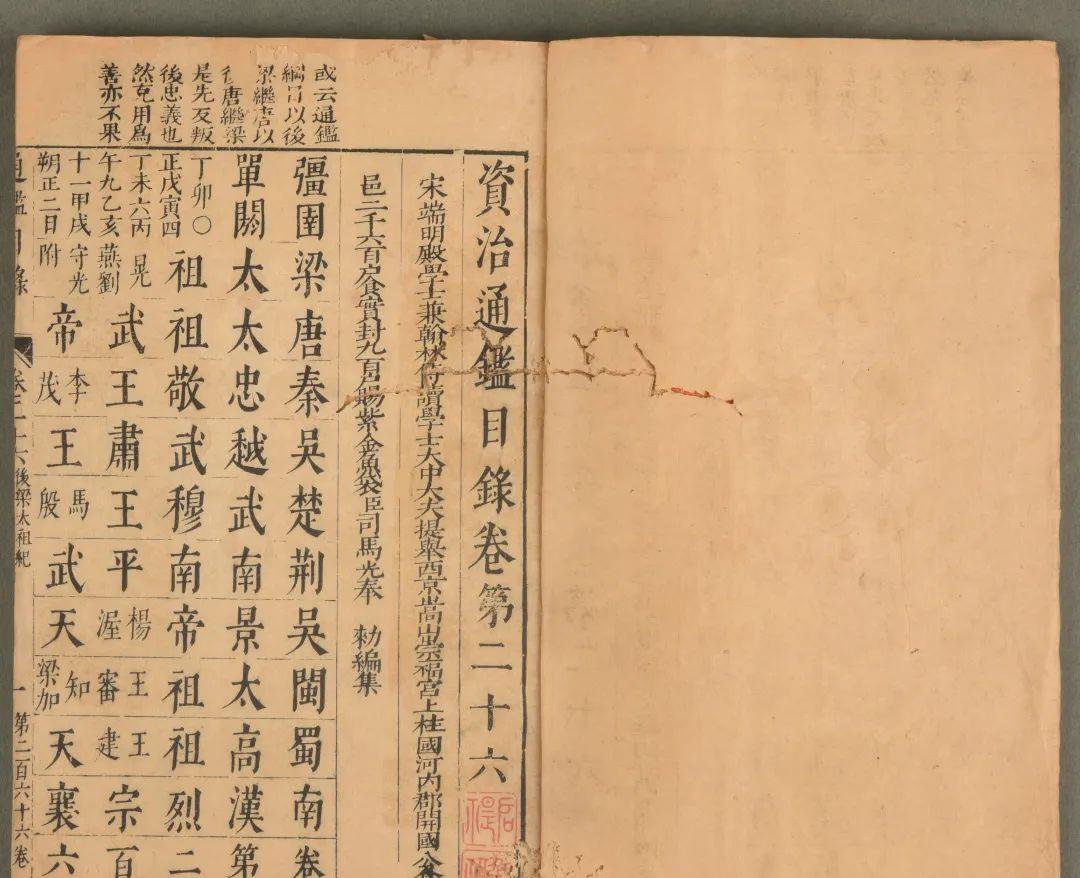 或云通鑑
綱目以後
梁繼唐以
後唐繼梁
是先反叛
後忠義也
然克用爲
善亦不果
資治通鑑目錄卷第二十六
宋端明殿學士兼翰林侍讀學士大中大夫提舉西京嵩山崇福宮上柱國河內郡開國公食
邑二千六百戶食實封九百戶賜紫金魚袋臣司馬光奉 勑編集
彊圉梁唐秦吳楚荆吳閩蜀南卷
單閼太太忠越武南景太高漢第
丁卯〇
正戊寅四
祖祖敬武穆南帝祖祖烈二
丁未六丙
午九乙亥
晃
燕劉
武王肅王平
楊渥
王審
王建
宗百
十一甲戌
朔正二日
守光
附
帝
李茂
王
馬殷
武天
知
梁加
天襄六
通鑑目錄
卷二十六
後梁太祖紀
一
第二百六十六卷